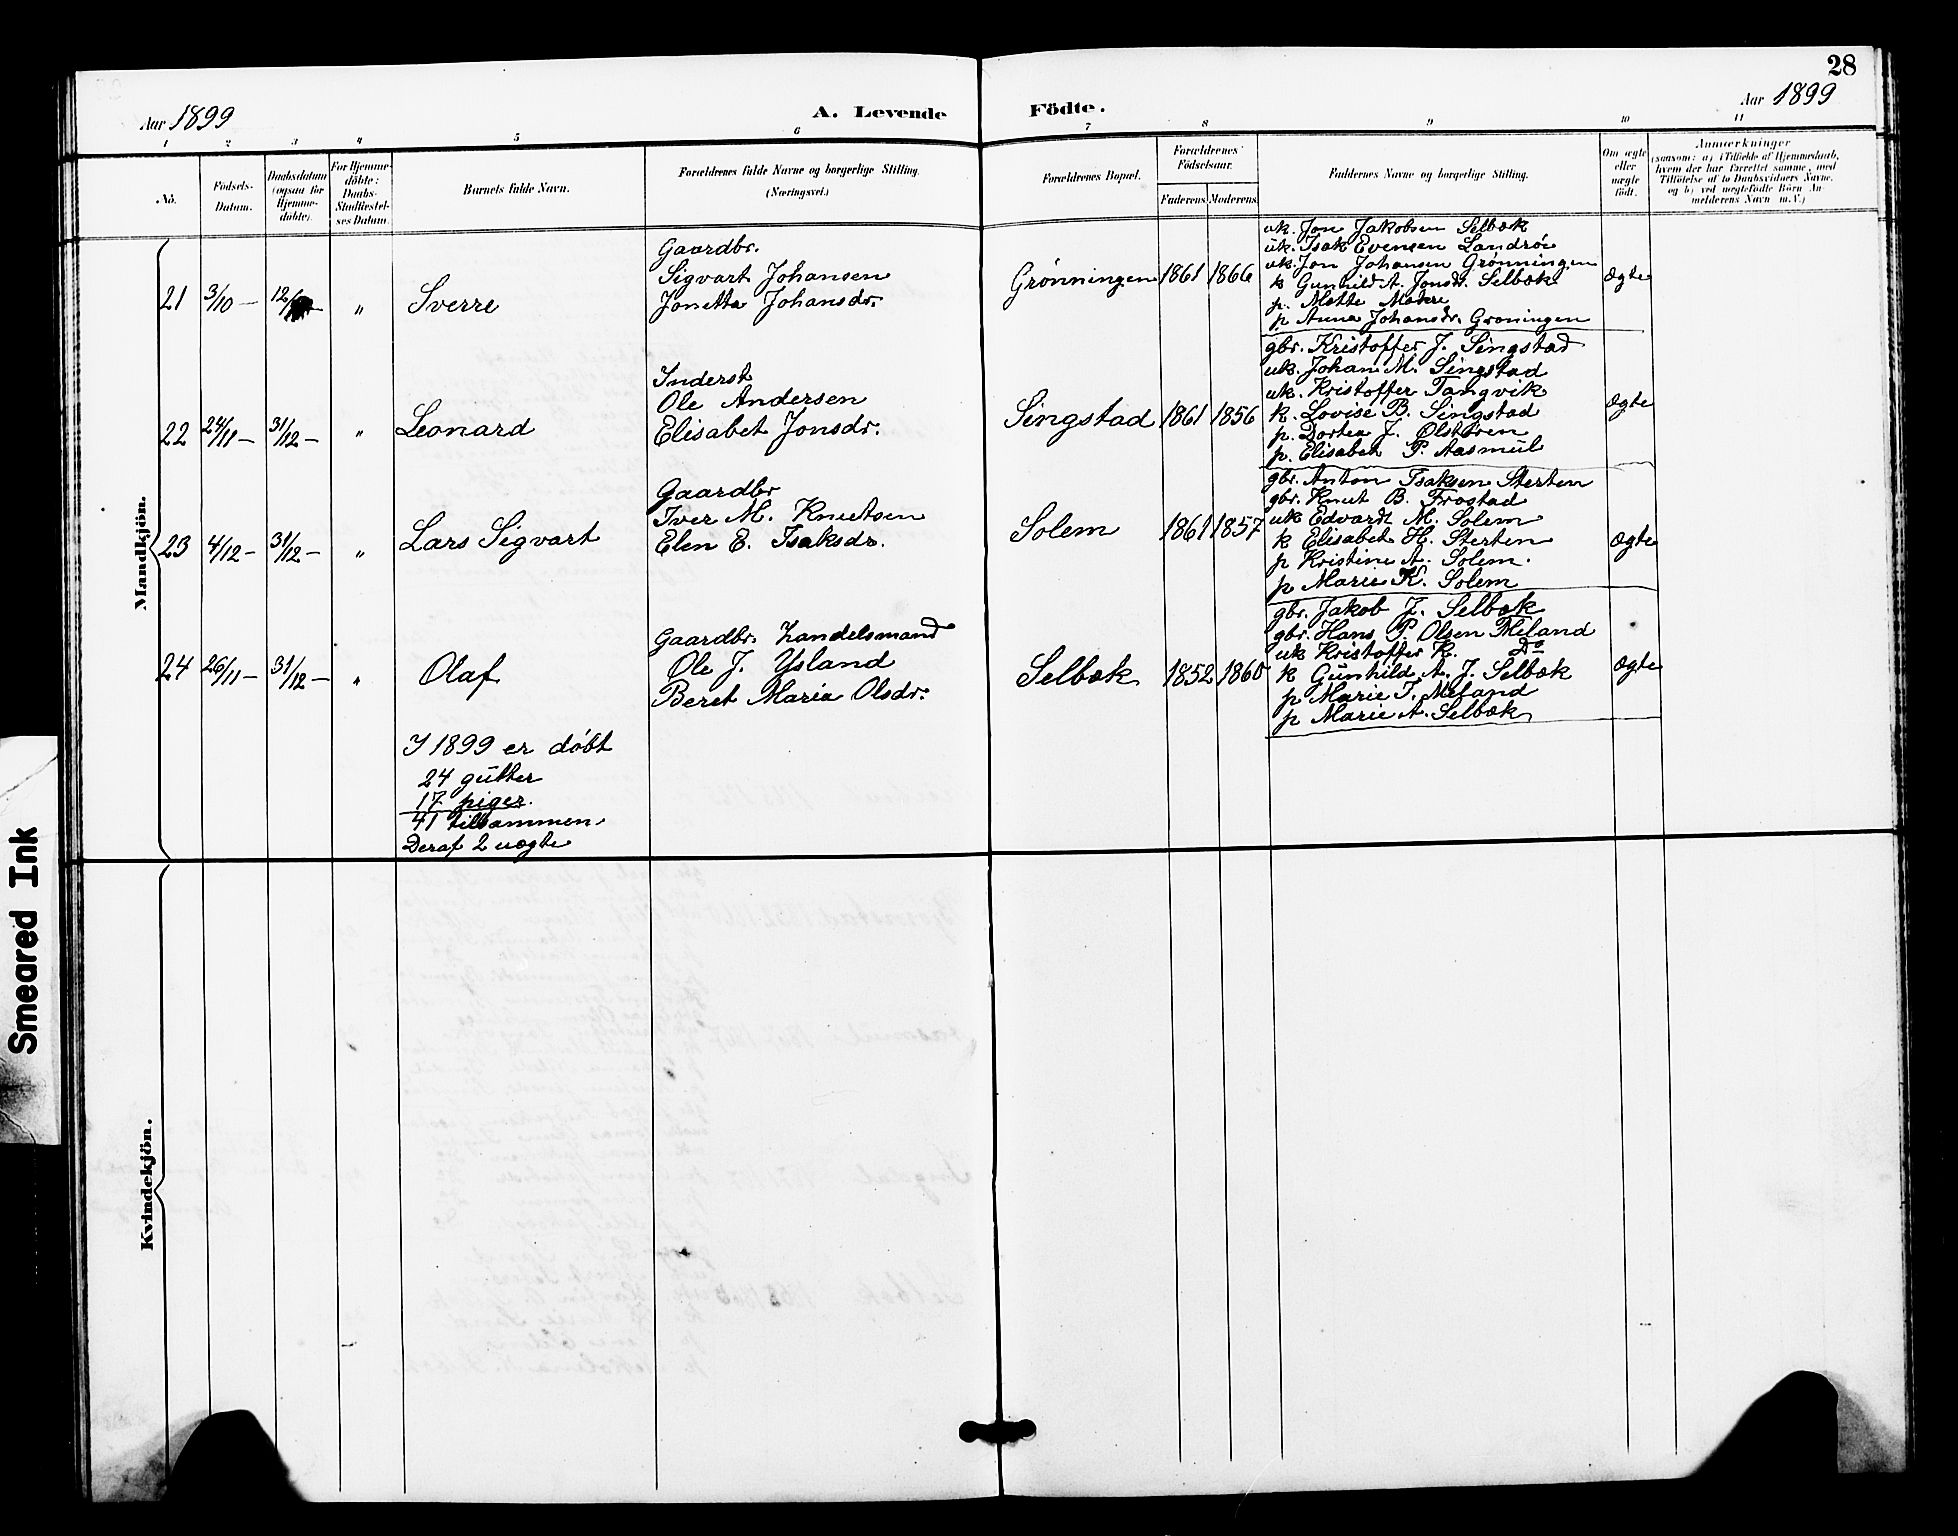 28
Aar 1899 A. Levende Födte. Aar 1899
1 2 3 4 5 6 7 8 9 10 11
No.
Födsels-Datum.
Daabsdatum (ogsaa for Hjemme-döbte).
For Hjemme-döbte: Daabs-Stadfæstel-ses Datum.
Barnets fulde Navn.
Forældrenes fulde Navne og borgerlige Stilling.
(Næringsvei.)
Forældrenes Bopæl.
Forældrenes Födselsaar.
Faderens. Moderens.
Faddernes Navne og borgerlige Stilling.
Om ægte eller uægte födt.
Anmærkninger
(saasom: a) i Tilfælde af Hjemmedaab,
hvem der har forrettet samme, med
Tilföielse af to Daabsvidners Navne,
og b) ved uægtefödte Börn An-
melderens Navn m.V.)
Mandkjön.
21 3/10 — 12/ — " Sverre
Gaardbr.
Sigvart Johansen
Jonetta Johansdr.
Grønningen 1861 1866
uk. Jon Jakobsen Selbæk
uk. Isak Evensen Landrøe
uk. Jon Johansen Grønningen
k Gunhild A. Jonsdr. Selbæk
p. Mette Modere
p Anna Johansdr. Grøningen
Ægte
22 24/11 — 31/12 — " Leonard
Inderst
Ole Andersen
Elisabet Jonsdr.
Singstad 1861 1856
gbr. Kristoffer J. Singstad
uk. Johan M. Singstad
uk. Kristoffer Tangvik
k. Lovise B. Singstad
p. Dortea J. Olstøren
p. Elisabet P. Aasmul
Ægte
23 4/12 — 31/12 — " Lars Sigvart
Gaardbr
Iver M. Knutsen
Elen E. Isaksdr.
Solem 1861 1857
gbr. Anton Isaksen Sterten
gbr. Knut B. Frostad
uk Edvardt M. Solem
k Elisabet H. Sterten
p Kristine A. Solem.
p Marie K. Solem
Ægte
24 26/11 — 31/12 — " Olaf
Gaardbr. Handelsmand
Ole J. Ysland
Beret Maria Olsdr.
Selbæk 1852 1860
gbr. Jakob J. Selbæk
gbr. Hans P. Olsen Meland
uk Kristoffer K. Do
k Gunhild A. J. Selbæk
p Marie J. Meland
p Marie A. Selbæk
Ægte
I 1899 er døbt
24 gutter
17 piger.
41 tilsammen.
Deraf 2 uægte
Kvindekjön.
Smeared Ink